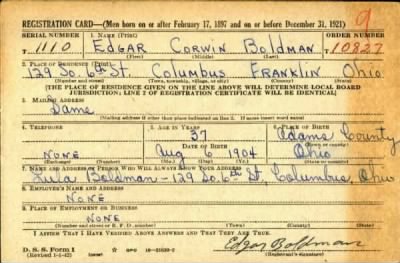 REGISTRATION CARD—(Men born on or after February 17, 1897 and on or before December 31, 1921) 9
SERIAL NUMBER 1. NAME (Print) ORDER NUMBER
T 1110 Edgar Corwin Boldman T 10827
(First) (Middle) (Last)
2. PLACE OF RESIDENCE (Print)
129 So. 6th St. Columbus Franklin Ohio
(Number and street) (Town, township, village, or city) (County) (State)
[THE PLACE OF RESIDENCE GIVEN ON THE LINE ABOVE WILL DETERMINE LOCAL BOARD
JURISDICTION; LINE 2 OF REGISTRATION CERTIFICATE WILL BE IDENTICAL]
3. MAILING ADDRESS
Same
[Mailing address if other than place indicated on line 2. If same insert word same]
4. TELEPHONE 5. AGE IN YEARS 6. PLACE OF BIRTH
37 Adams County
DATE OF BIRTH (Town or county)
None Aug 6 1904 Ohio
(Exchange) (Number) (Mo.) (Day) (Yr.) (State or country)
7. NAME AND ADDRESS OF PERSON WHO WILL ALWAYS KNOW YOUR ADDRESS
Lula Boldman - 129 So. 6th St Columbus, Ohio
8. EMPLOYER'S NAME AND ADDRESS
None
9. PLACE OF EMPLOYMENT OR BUSINESS
None
(Number and street or R. F. D. number) (Town) (County) (State)
I AFFIRM THAT I HAVE VERIFIED ABOVE ANSWERS AND THAT THEY ARE TRUE.
D. S. S. Form 1 Edgar Boldman
(Revised 1-1-42) GPO (Registrant's signature)